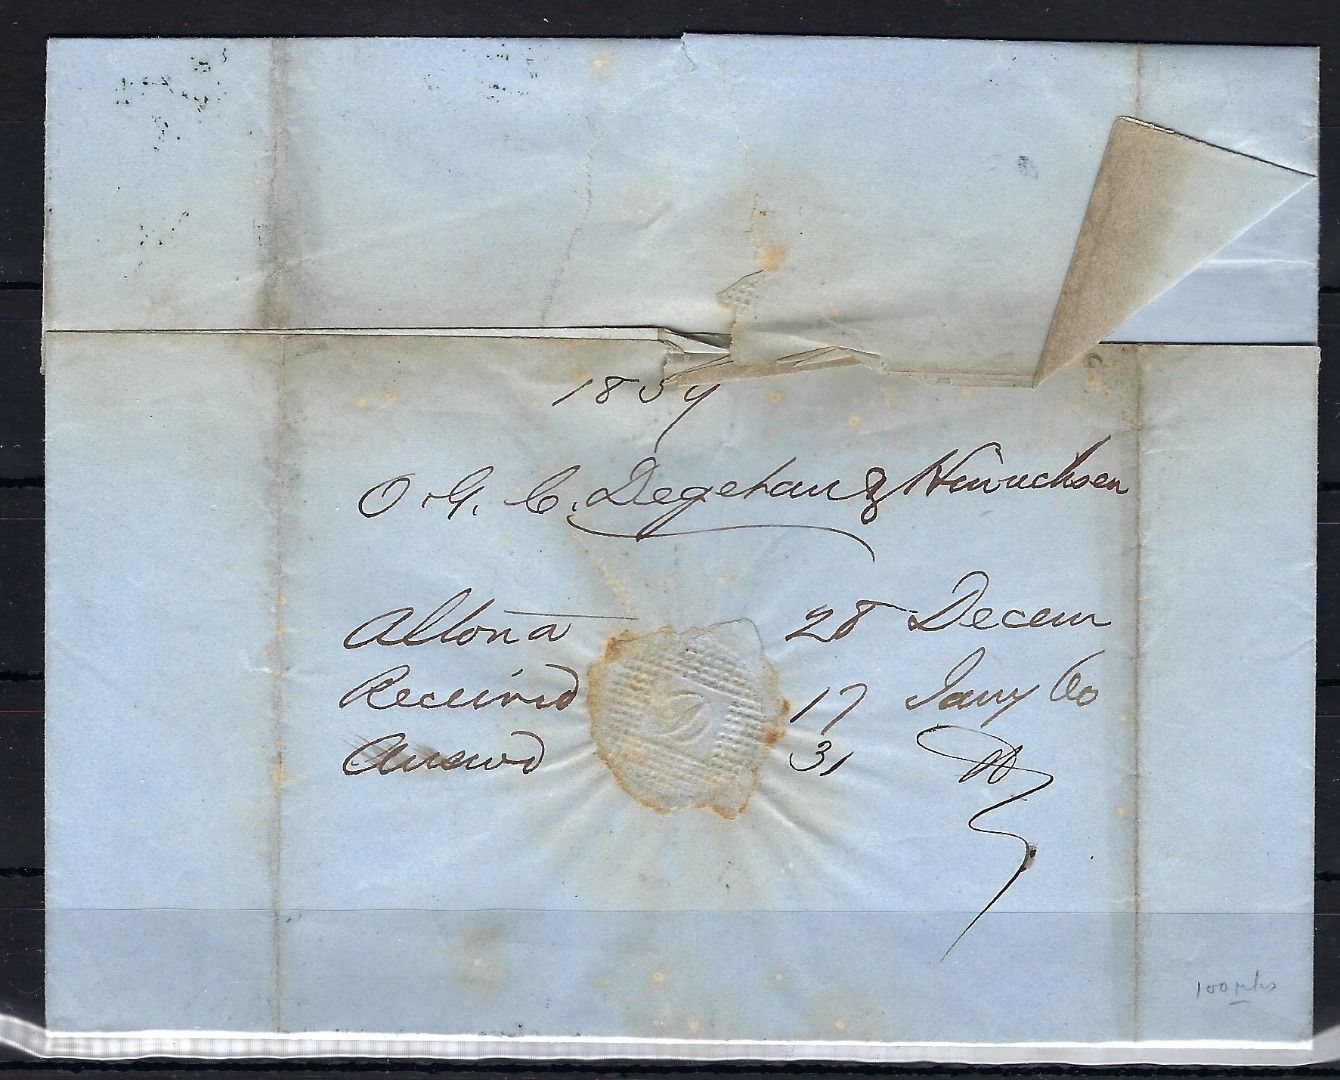 1859
O. G. C. Degetau & Hinrichsen
Altona 28 Decem
Received 17 Jany 60
Answd 31
100 Mks